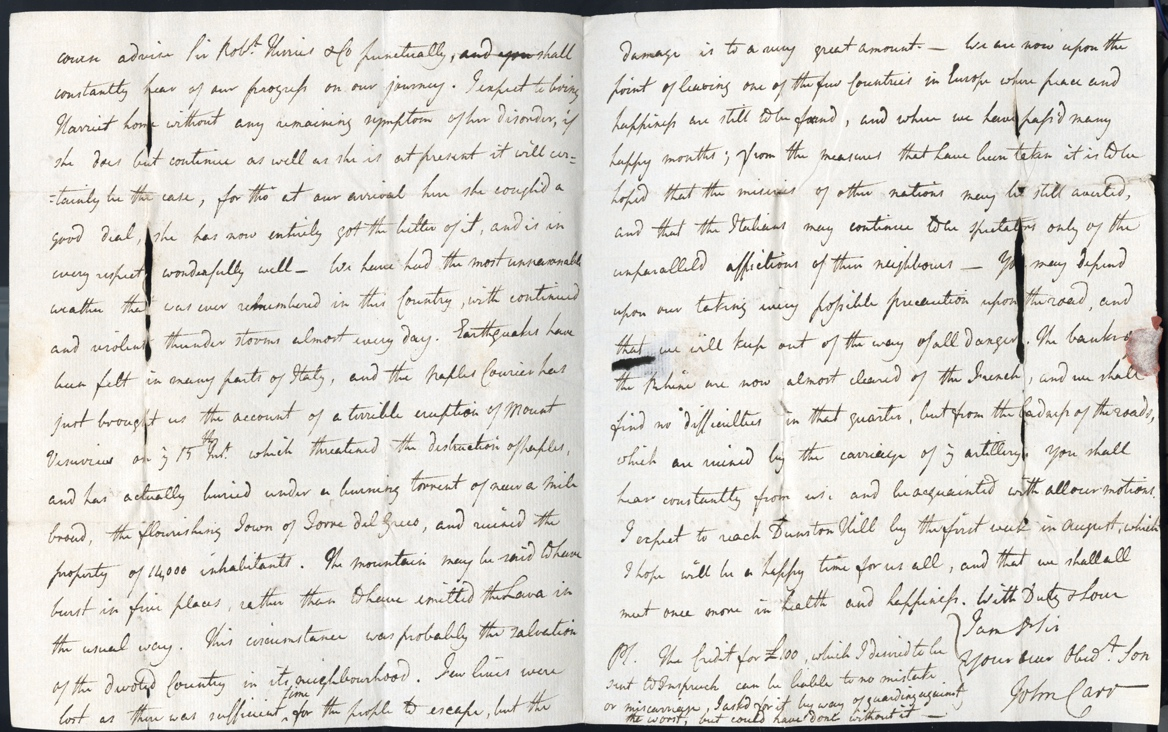 course advise Sir Robt. Herries & Co punctually, and you shall
constantly hear of our progress on our journey. I expect to bring
Harriet home without any remaining symptom of her disorder, if
she does but continue as well as she is at present it will cer=
=tainly be the case, for tho' at our arrival here she cough'd a
good deal, she has now entirely got the better of it, and is in
every respect wonderfully well — We have had the most unseasonable
weather that was ever remembered in this Country, with continued
and violent thunder storms almost every day. Earthquakes have
been felt in many parts of Italy, and the Naples Courier has
just brought us the account of a terrible eruption of Mount
Vesuvius on ye 15th Inst. which threatened the destruction of Naples,
and has actually buried under a burning torrent of near a mile
broad, the flourishing Town of Torre del Greco, and ruined the
property of 14,000 inhabitants. The mountain may be said to have
burst in five places, rather than to have emitted the Lava in
the usual way. This circumstance was probably the salvation
of the devoted Country in its neighbourhood. Few lives were
lost as there was sufficient time for the people to escape, but the
damage is to a very great amount. — We are now upon the
point of leaving one of the few Countries in Europe where peace and
happiness are still to be found, and where we have pass'd many
happy months; from the measures that have been taken it is to be
hoped that the miseries of other nations may be still averted,
and that the Italians may continue to be spectators only of the
unparalleld afflictions of their neighbours — You may depend
upon our taking every possible precaution upon the road, and
that we will keep out of the way of all danger. The banks of
the Rhine are now almost cleared of the French, and we shall
find no difficulties in that quarter, but from the badness of the roads,
which are ruined by the carriage of ye artillery. You shall
hear constantly from us: and be acquainted with all our motions.
I expect to reach Dunston Hill by the first week in August, which
I hope will be a happy time for us all, and that we shall all
meet once more in health and happiness. With Duty & Love
I am Dr Sir
Your ever Obedt. Son
John Carr
PS. The Credit for £100, which I desired to be
sent to Inspruck can be liable to no mistake
or miscarriage, I ask'd for it by way of guarding against
the worst, but could have done without it —